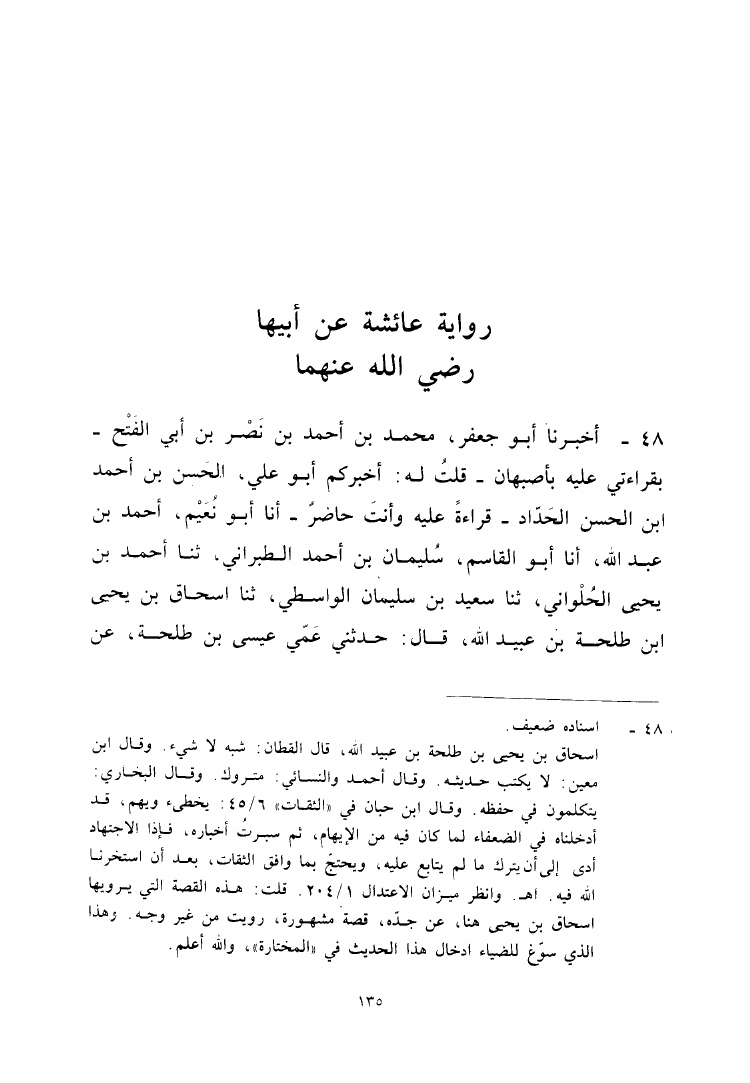 رواية عائشة عن أبيها
رضي الله عنهما
٤٨ ـ أخبرنا أبو جعفر، محمد بن أحمد بن نَصْر بن أبي الفَتْح ـ
بقراءتي عليه بأصبهان ـ قلتُ له: أخبركم أبو علي، الحَسن بن أحمد
ابن الحسن الحَدّاد ـ قراءةً عليه وأنتَ حاضرٌ ـ أنا أبو نُعَيْم، أحمد بن
عبد الله، أنا أبو القاسم، سُليمان بن أحمد الطبراني، ثنا أحمد بن
يحيى الحُلْواني، ثنا سعيد بن سليمان الواسطي، ثنا اسحاق بن يحيى
ابن طلحة بن عبيد الله، قال: حدثني عَمّي عيسى بن طلحة، عن
٤٨ ـ اسناده ضعيف.
اسحاق بن يحيى بن طلحة بن عبيد الله، قال القطان: شبه لا شيء. وقال ابن
معين: لا يكتب حديثه. وقال أحمد والنسائي: متروك. وقال البخاري:
يتكلمون في حفظه. وقال ابن حبان في «الثقات» ٤٥/٦: يخطىء ويهم، قد
أدخلناه في الضعفاء لما كان فيه من الإيهام، ثم سبرتُ أخباره، فإذا الاجتهاد
أدى إلى أن يترك ما لم يتابع عليه، ويحتجّ بما وافق الثقات، بعد أن استخرنا
الله فيه. اهـ. وانظر ميزان الاعتدال ٢٠٤/١. قلت: هذه القصة التي يرويها
اسحاق بن يحيى هنا، عن جدّه، قصة مشهورة، رويت من غير وجه. وهذا
الذي سوّغ للضياء ادخال هذا الحديث في «المختارة»، والله أعلم.
١٣٥